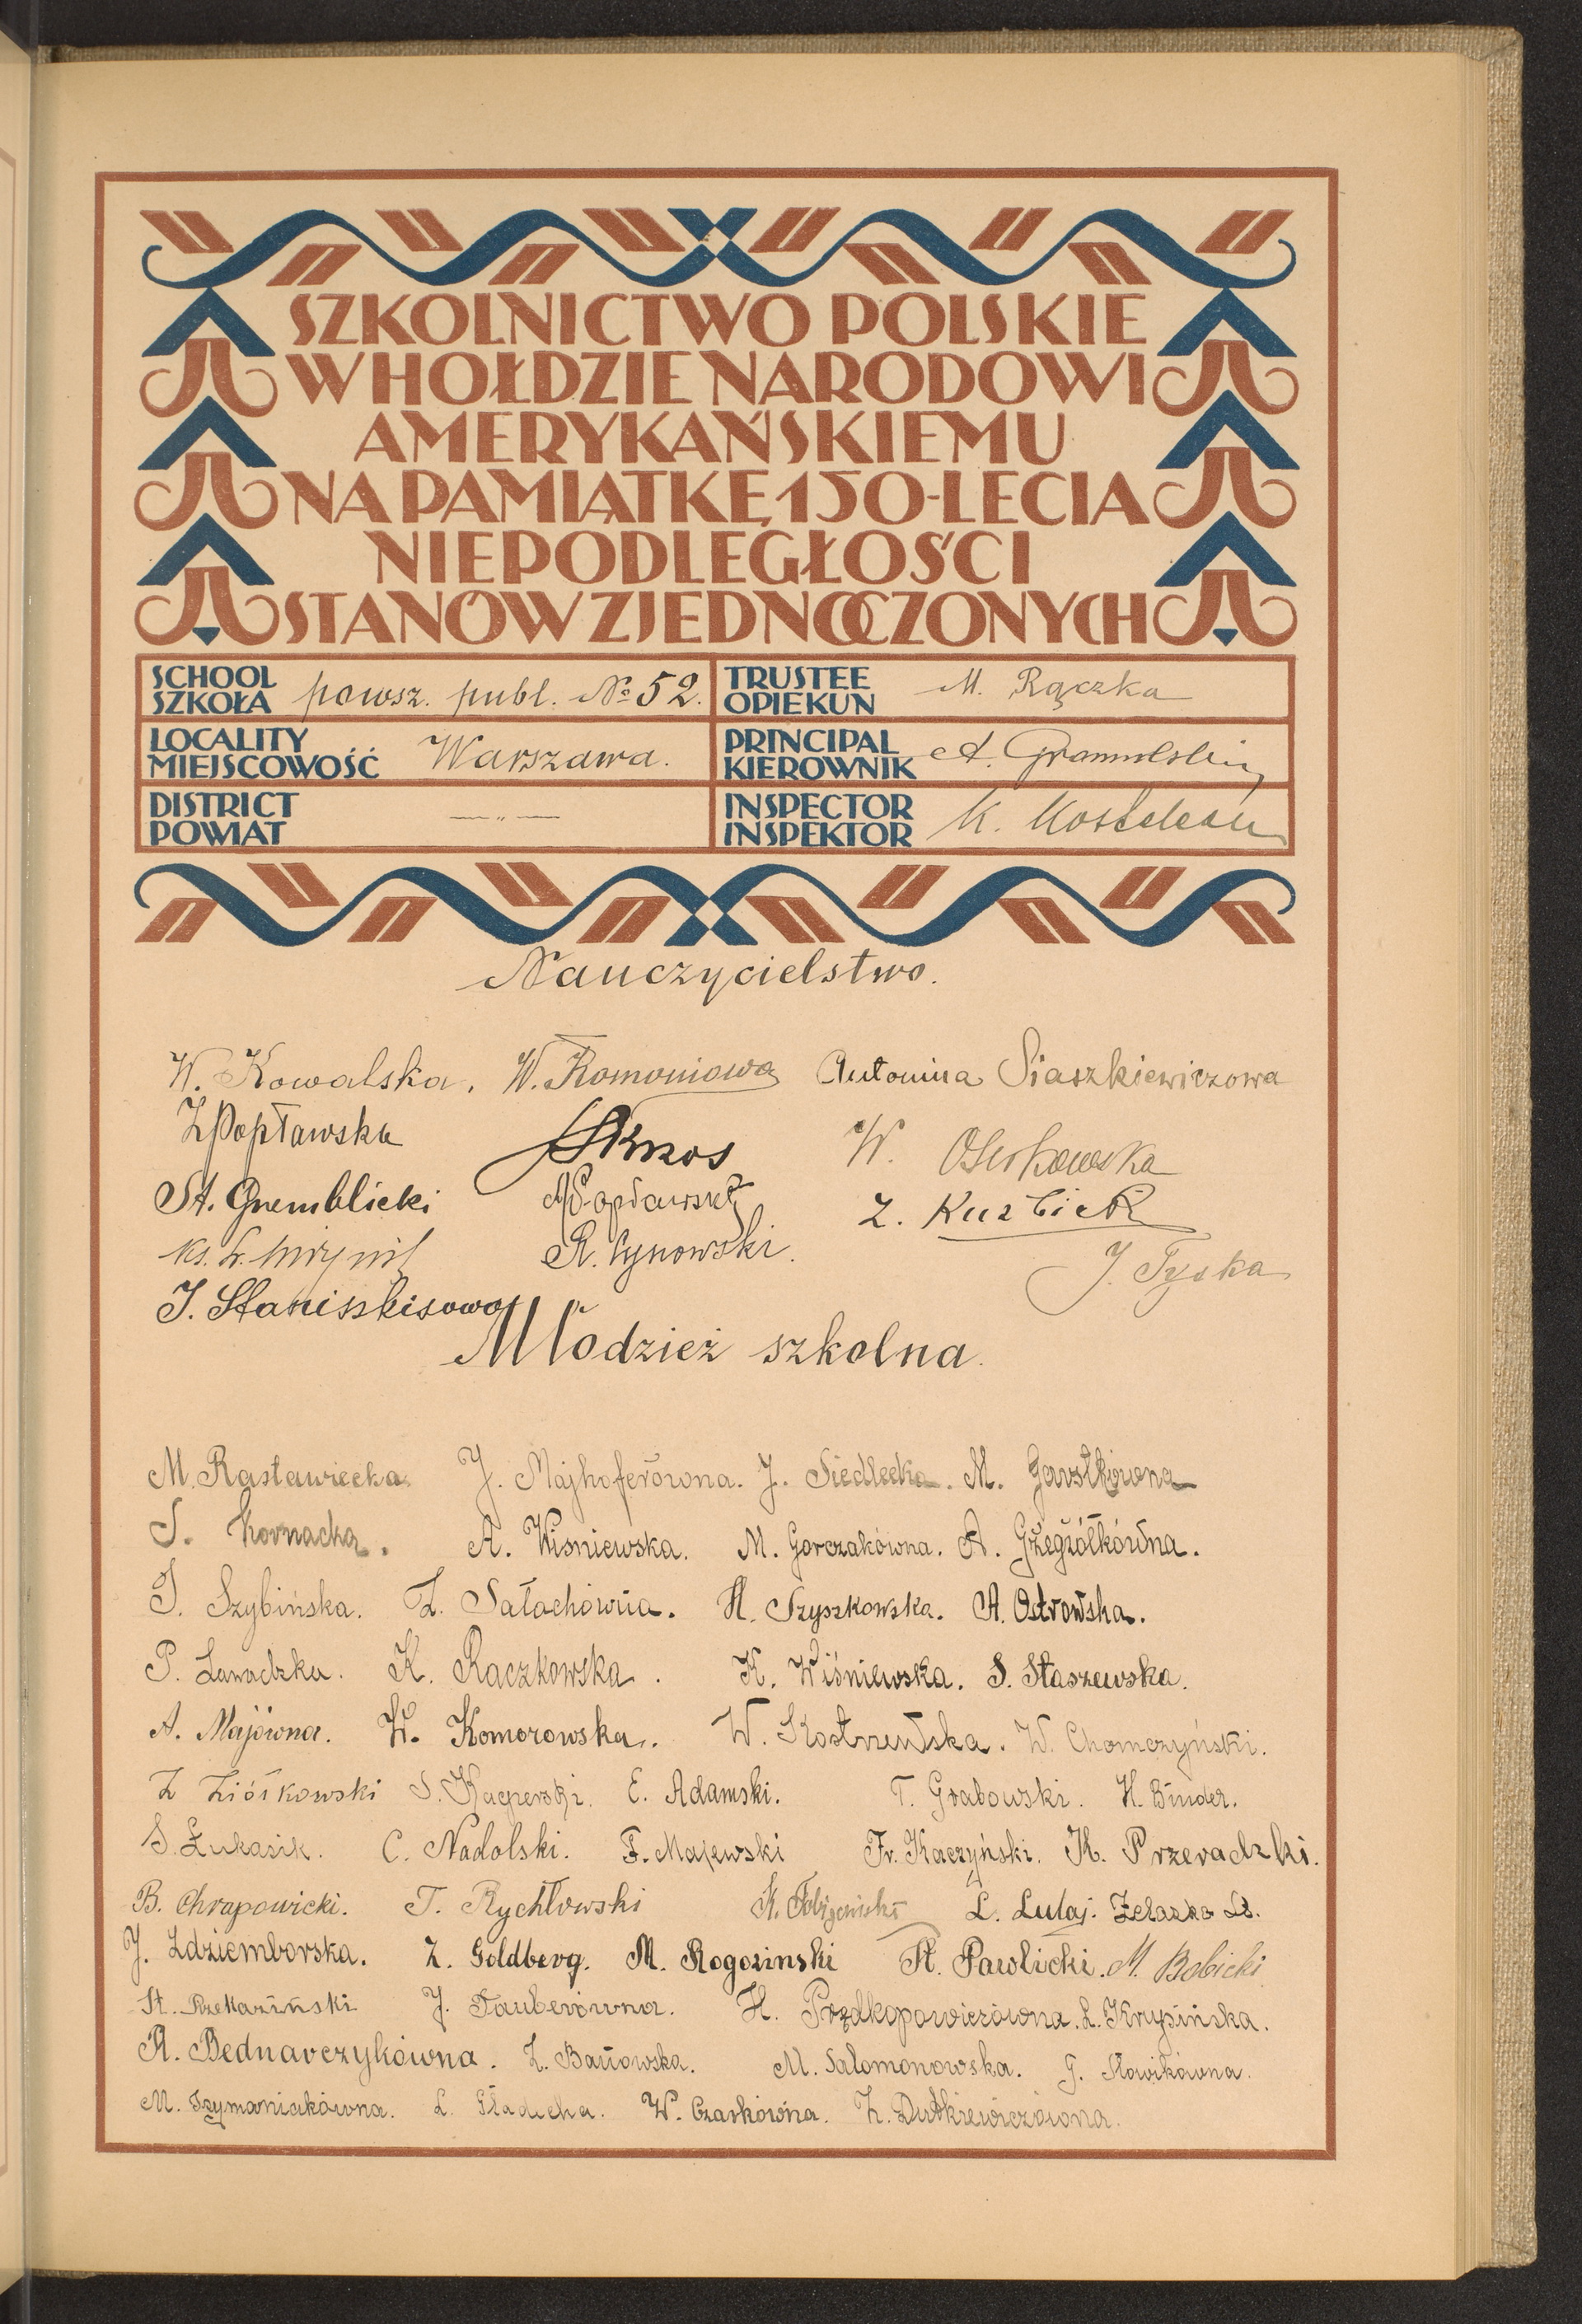 SZKOLNICTWO POLSKIE
W HOŁDZIE NARODOWI
AMERYKAŃSKIEMU
NA PAMIĄTKĘ 150-LECIA
NIEPODLEGŁOŚCI
STANÓW ZJEDNOCZONYCH
SCHOOL
SZKOŁA powsz. publ. № 52.
TRUSTEE
OPIEKUN M. Rączka
LOCALITY
MIEJSCOWOŚĆ Warszawa.
PRINCIPAL
KIEROWNIK A.
DISTRICT
POWIAT —„—
INSPECTOR
INSPEKTOR K.
Nauczycielstwo.
W. Kowalska. W. Romoniowa Antonina Siaszkiewiczowa
Z Popławska W.
St. Gremblicki Z. Kuzbick
ks. R. Cynowski. J. Tyska
J. Staniszkisowa
Młodzież szkolna.
M. Rasławiecka J. Majhoferówna. J. Siedlecka. M.
S. Kornacka. A. Wiśniewska. M. Gorczakówna. A. Grzegżółkówna.
J. Szybińska. Z. Sałachówna. H. Szyszkowska. A. Ostrowska.
P. Zawadzka. K. Raczkowska. K. Wiśniewska. S. Staszewska.
A. Majówna. W. Komorowska. W. Kostrzewska. W. Chomczyński.
Z Ziółkowski S. Kacperski. E. Adamski. T. Grabowski. H. Binder.
S. Łukasik. C. Nadolski. F. Majewski Fr. Kaczyński. K. Przevadzki.
B. Chrapowicki. T. Rychłowski K. L. Lutaj. Żelazko
J. Zdziemborska. Z. Goldberg. M. Rogozinski St. Pawlicki. M. Bobicki
St. Rzekaziński J. Tauberówna. H. L. Krysińska.
R. Bednarczykówna. Z. Banowska. M. Salomonowska. J. Słowikówna.
M. Szymaniakówna. L. Gładycha. W. Czarkówna. Z. Dutkiewiczówna.